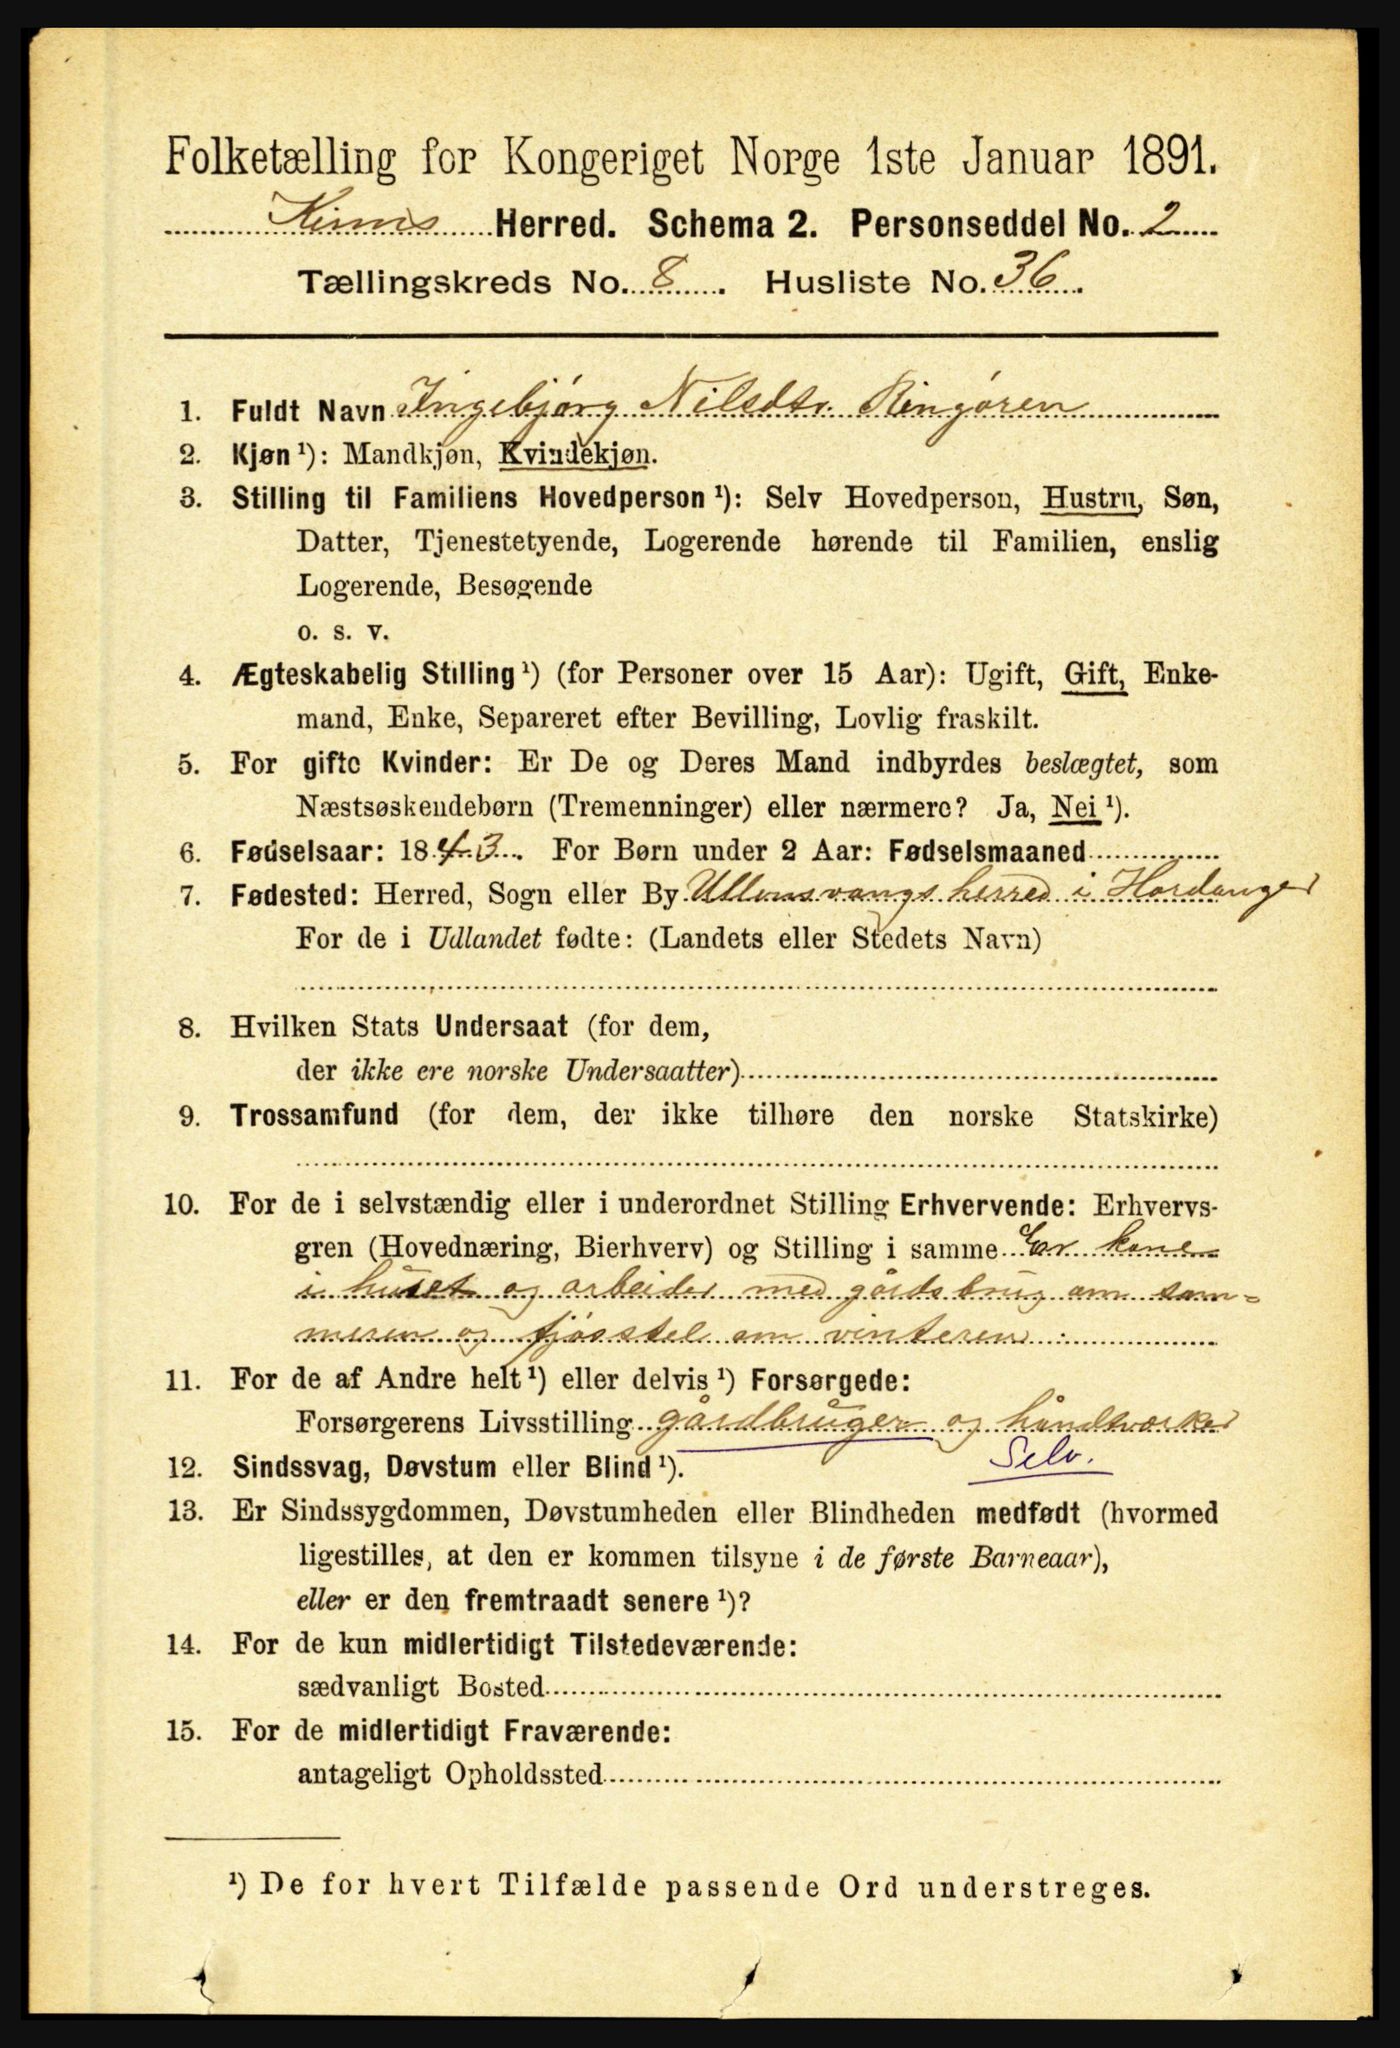 Folketælling for Kongeriget Norge 1ste Januar 1891.
Kinns Herred. Schema 2. Personseddel No. 2
Tællingskreds No. 8. Husliste No. 36.
1. Fuldt Navn Ingebjørg Nilsdtr. Ringøren
2. Kjøn ¹): Mandkjøn, Kvindekjøn.
3. Stilling til Familiens Hovedperson ¹): Selv Hovedperson, Hustru, Søn,
Datter, Tjenestetyende, Logerende hørende til Familien, enslig
Logerende, Besøgende
o. s. v.
4. Ægteskabelig Stilling ¹) (for Personer over 15 Aar): Ugift, Gift, Enke-
mand, Enke, Separeret efter Bevilling, Lovlig fraskilt.
5. For gifte Kvinder: Er De og Deres Mand indbyrdes beslægtet, som
Næstsøskendebørn (Tremenninger) eller nærmere? Ja, Nei ¹).
6. Fødselsaar: 1843. For Børn under 2 Aar: Fødselsmaaned
7. Fødested: Herred, Sogn eller By Ullensvangs herred i Hardanger
For de i Udlandet fødte: (Landets eller Stedets Navn)
8. Hvilken Stats Undersaat (for dem,
der ikke ere norske Undersaatter)
9. Trossamfund (for dem, der ikke tilhøre den norske Statskirke)
10. For de i selvstændig eller i underordnet Stilling Erhvervende: Erhvervs-
gren (Hovednæring, Bierhverv) og Stilling i samme Er kone
i huset og arbeider med gårdsbrug om som-
meren og fjøsstel om vinteren.
11. For de af Andre helt ¹) eller delvis ¹) Forsørgede:
Forsørgerens Livsstilling gårdbruger og håndtværker
Selv.
12. Sindssvag, Døvstum eller Blind ¹).
13. Er Sindssygdommen, Døvstumheden eller Blindheden medfødt (hvormed
ligestilles, at den er kommen tilsyne i de første Barneaar),
eller er den fremtraadt senere ¹)?
14. For de kun midlertidigt Tilstedeværende:
sædvanligt Bosted
15. For de midlertidigt Fraværende:
antageligt Opholdssted
¹) De for hvert Tilfælde passende Ord understreges.